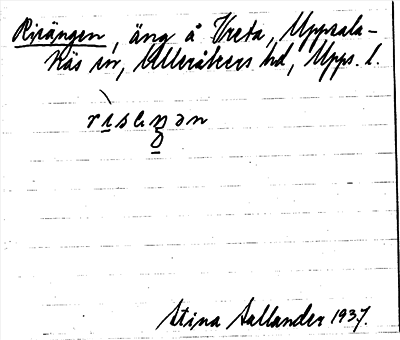 Risängen, äng å Vreta, Uppsala-
Näs sn, Ulleråkers hd, Upps. l.
Stina Sallander 1937.